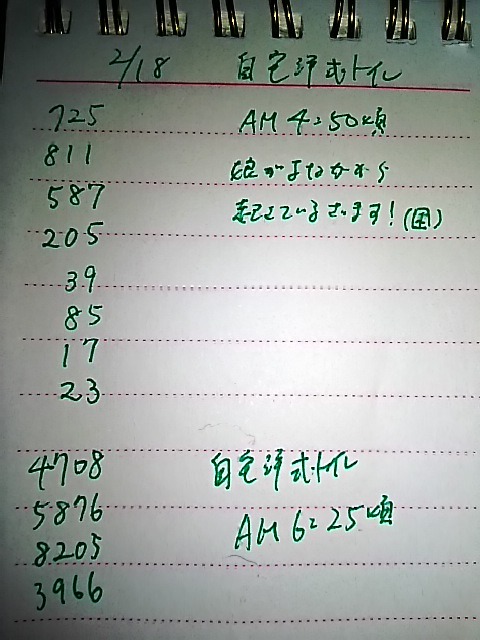 2/18 自宅洋式トイレ
725 AM 4:50頃
811 娘がよなかから
587
起きているざます!(困)
205
39
85
17
23
4708 自宅洋式トイレ
5876 AM 6:25頃
8205
3966